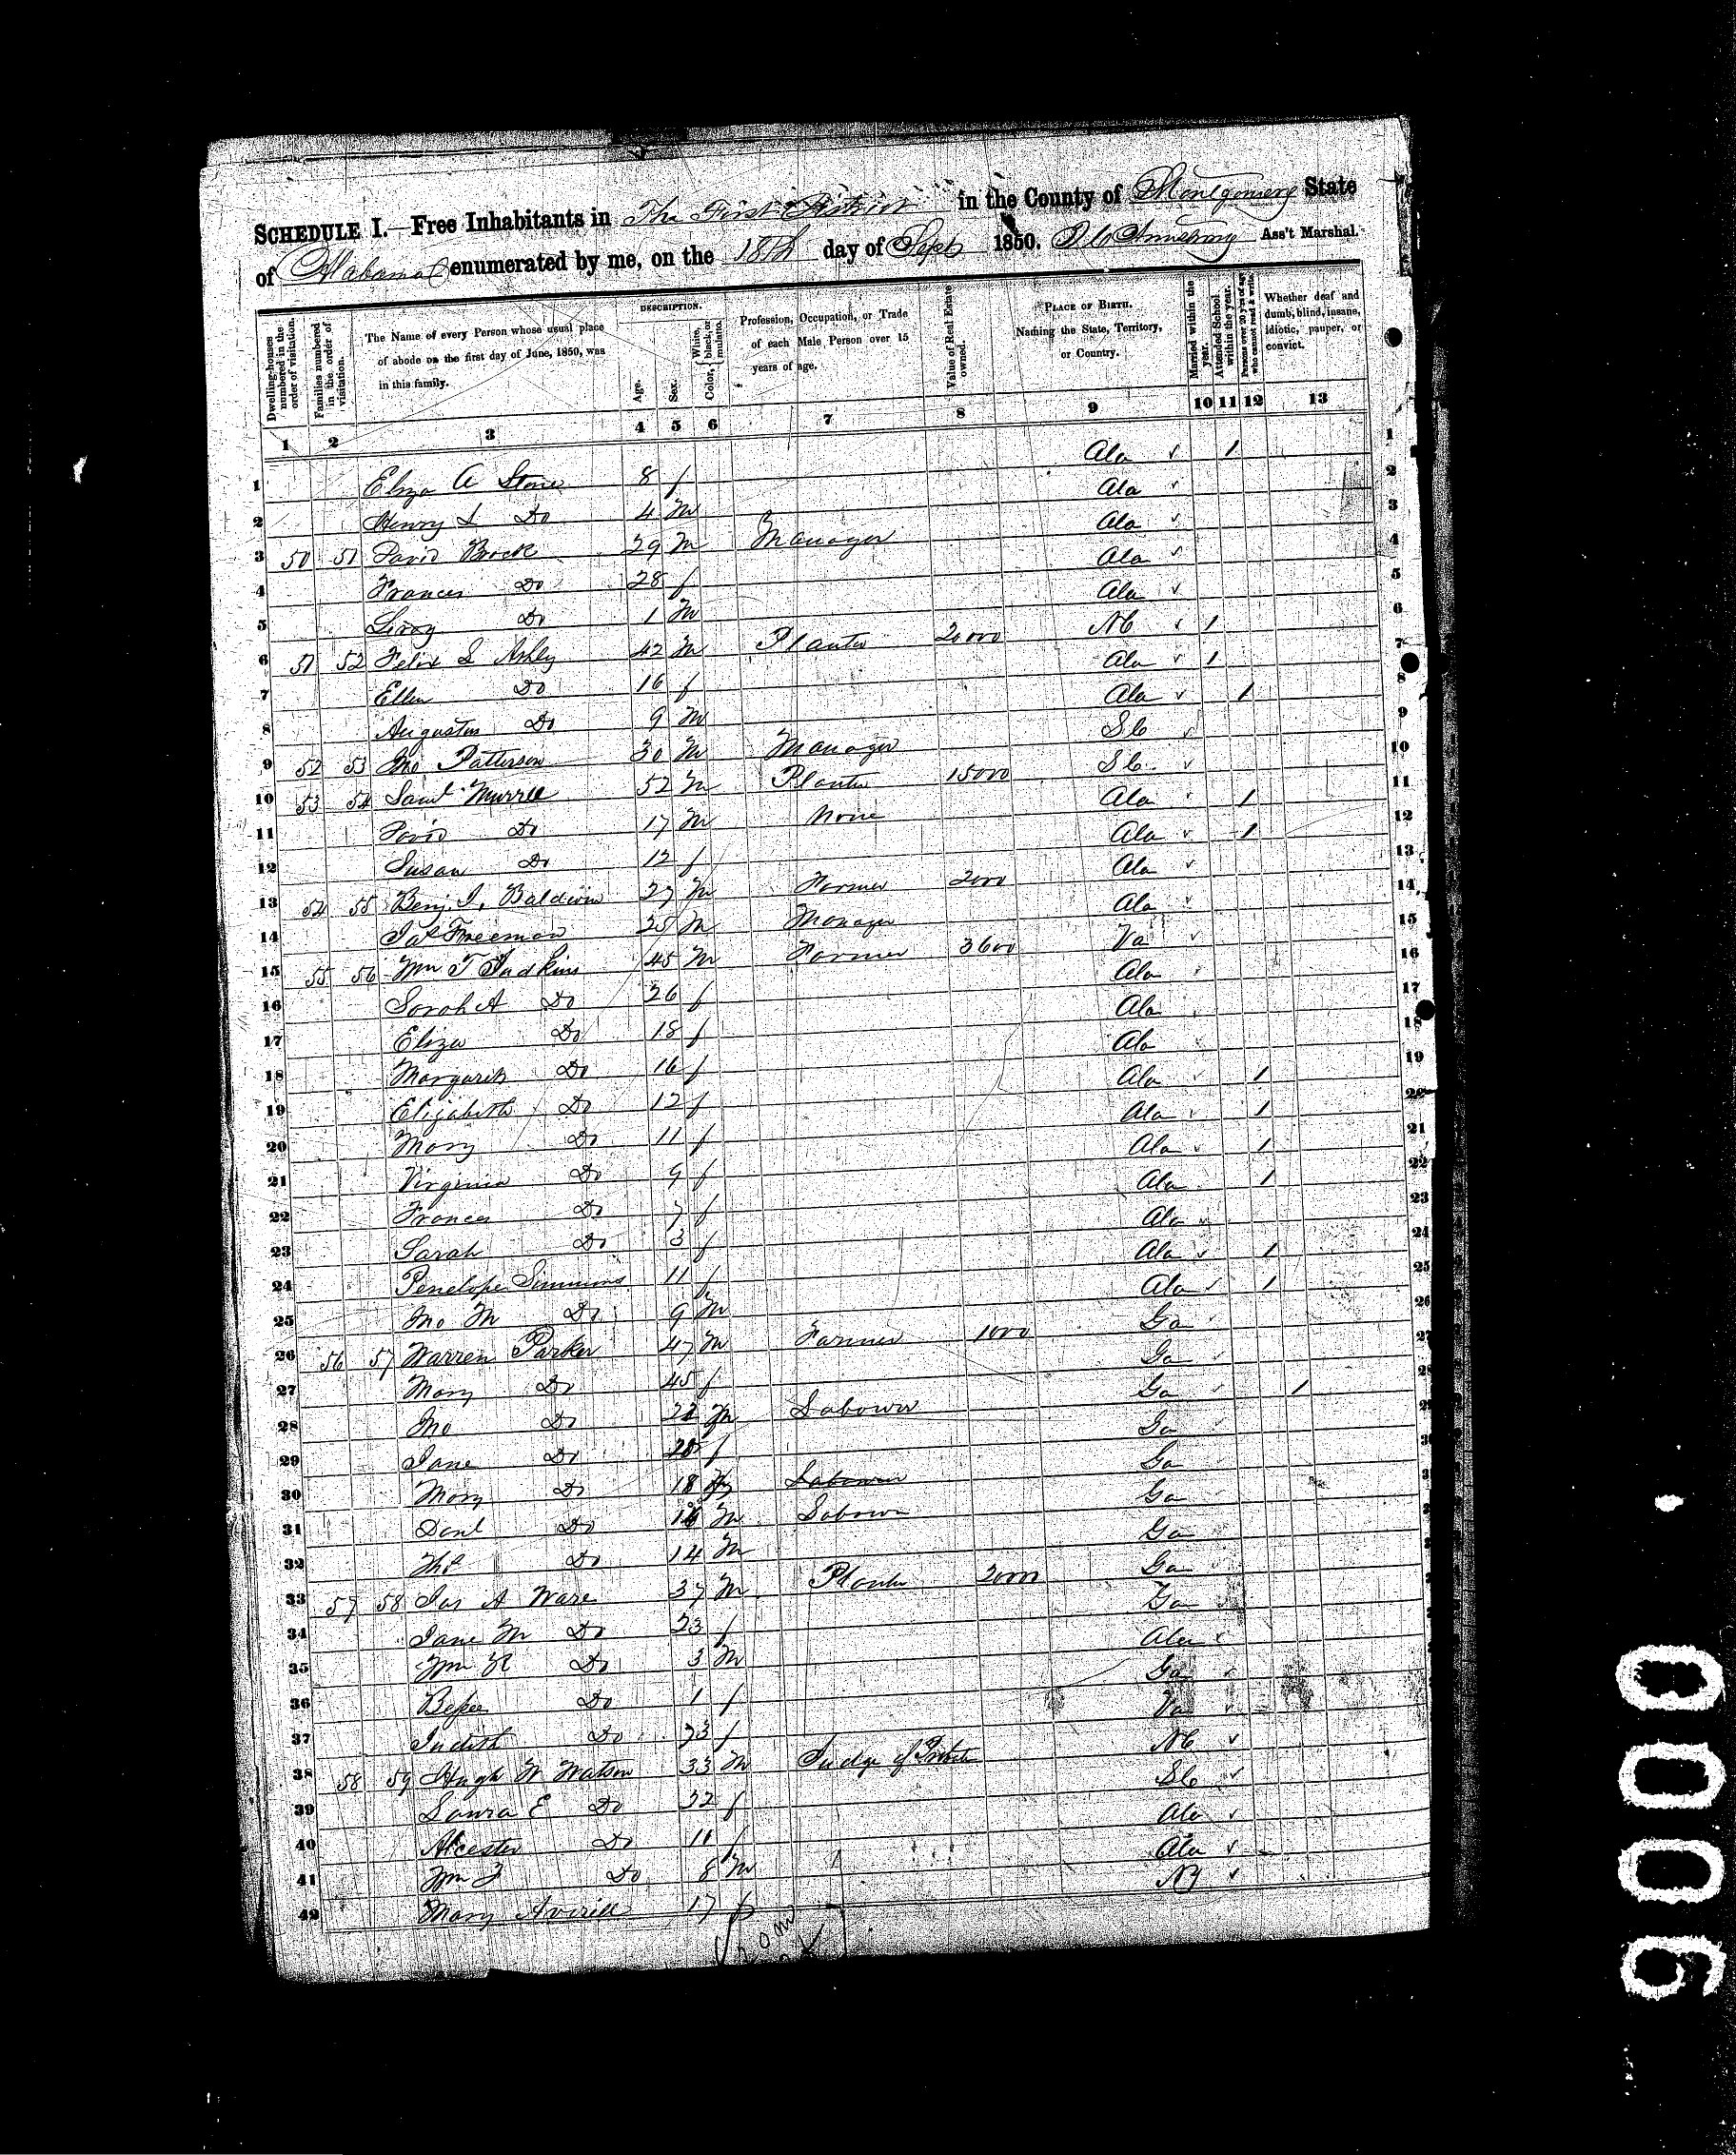 SCHEDULE I.—Free Inhabitants in The First District in the County of Montgomery State
of Alabama enumerated by me, on the 18th day of Sept 1850. Armstrong Ass't Marshal.
Dwelling-houses numbered in the order of visitation.
Families numbered in the order of visitation.
The Name of every Person whose usual place of abode on the first day of June, 1850, was in this family.
DESCRIPTION.
Age.
Sex.
Color, { White, black, or mulatto.
Profession, Occupation, or Trade of each Male Person over 15 years of age.
Value of Real Estate owned.
PLACE OF BIRTH. Naming the State, Territory, or Country.
Married within the year.
Attended School within the year.
Persons over 20 y'rs of age who cannot read & write.
Whether deaf and dumb, blind, insane, idiotic, pauper, or convict.
1 2 3 4 5 6 7 8 9 10 11 12 13
1 Eliza A Stone 8 f Ala ✓ 1
2 Henry L Do 4 M Ala ✓
3 50 51 David Brock 29 M Manager Ala ✓
4 Frances Do 28 f Ala ✓
5 Leroy Do 1 M Ala ✓
6 51 52 Felix L Ashly 42 M Planter 20000 NC ✓ 1
7 Ellen Do 16 f Ala ✓ 1
8 Augustus Do 9 M Ala ✓ 1
9 52 53 Jno Patterson 30 M Manager SC ✓
10 53 54 Saml Murrell 52 M Planter 15000 SC ✓
11 David Do 17 M None Ala ✓ 1
12 Susan Do 12 f Ala ✓ 1
13 54 55 Benj. J. Baldwin 27 M Farmer 2000 Ala ✓
14 Jas Freeman 25 M Manager Ala ✓
15 55 56 Wm T Judkins 45 M Farmer 3600 Va ✓
16 Sarah A Do 26 f Ala
17 Eliza Do 18 f Ala
18 Margaret Do 16 f Ala
19 Elizabeth Do 12 f Ala ✓ 1
20 Mary Do 11 f Ala ✓ 1
21 Virginia Do 9 f Ala ✓ 1
22 Frances Do 7 f Ala 1
23 Sarah Do 3 f Ala ✓
24 Penelope Simmons 11 f Ala ✓ 1
25 Jno M Do 9 M Ala ✓ 1
26 56 57 Warren Parker 47 M Farmer 1000 Ga ✓
27 Mary Do 45 f Ga ✓
28 Jno Do M Labourer Ga ✓ 1
29 Jane Do 20 f Ga ✓
30 Mary Do 18 Labourer Ga
31 Danl Do M Labourer Ga ✓
32 Ths Do 14 M Ga
33 57 58 Jas A Ware 37 M Planter 2000 Ga ✓
34 Jane M Do 23 f Ga ✓
35 Wm Do 3 M Ala ✓
36 Do 1 f Ga ✓
37 Judith Do 73 f Va ✓
38 58 59 Hugh W Watson 33 M Judge of Probate NC ✓
39 Laura E Do 32 f SC ✓
40 Alcester Do 11 f Ala ✓
41 Wm F Do 8 M Ala ✓
42 Mary Averill 17 f NY ✓
90006